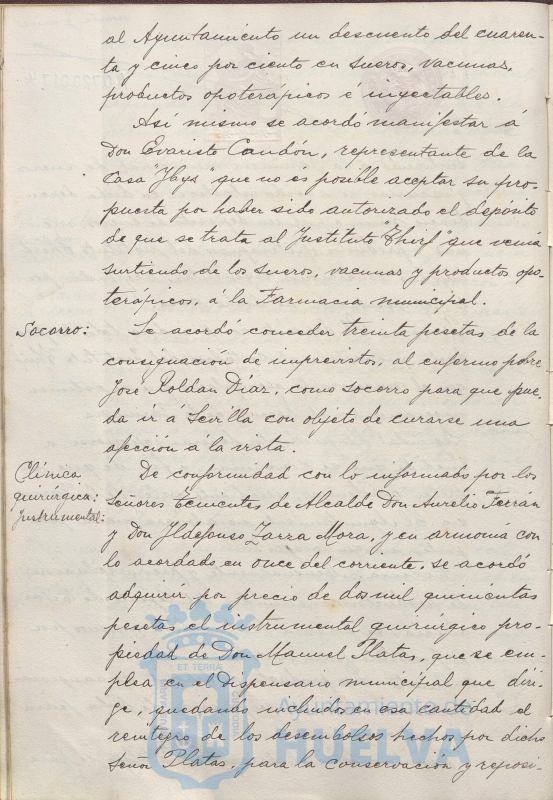 al Ayuntamiento un descuento del cuaren-
ta y cinco por ciento en sueros, vacunas,
productos opoterápicos é inyectables.
Así mismo se acordó manifestar á
Don Evaristo Candón, representante de la
Casa "Ibys" que no es posible aceptar su pro-
puesta por haber sido autorizado el depósito
de que se trata al Instituto "Thirf" que venia
surtiendo de los sueros, vacunas y productos opo-
terápicos, á la Farmacia municipal.
Socorro: Se acordó conceder treinta pesetas de la
consignación de imprevistos, al enfermo pobre
José Roldan Díaz, como socorro para que pue-
da ir a Sevilla con objeto de curarse una
afección á la vista.
Clínica De conformidad con lo informado por los
quirúrgica: Señores Tenientes de Alcalde Don Aurelio Ferrán
Instrumental: y Don Ildefonso Zarza Mora, y en armonía con
lo acordado en once del corriente, se acordó
adquirir por precio de dos mil quinientas
pesetas el instrumental quirúrgico pro-
piedad de Don Manuel Platas, que se em-
plea en el Dispensario municipal que diri-
ge, quedando incluidos en esa cantidad el
reintegro de los desembolsos hechos por dicho
Señor Platas, para la conservación y reposi-
ET TERRAE
Ayuntamiento de
HUELVA